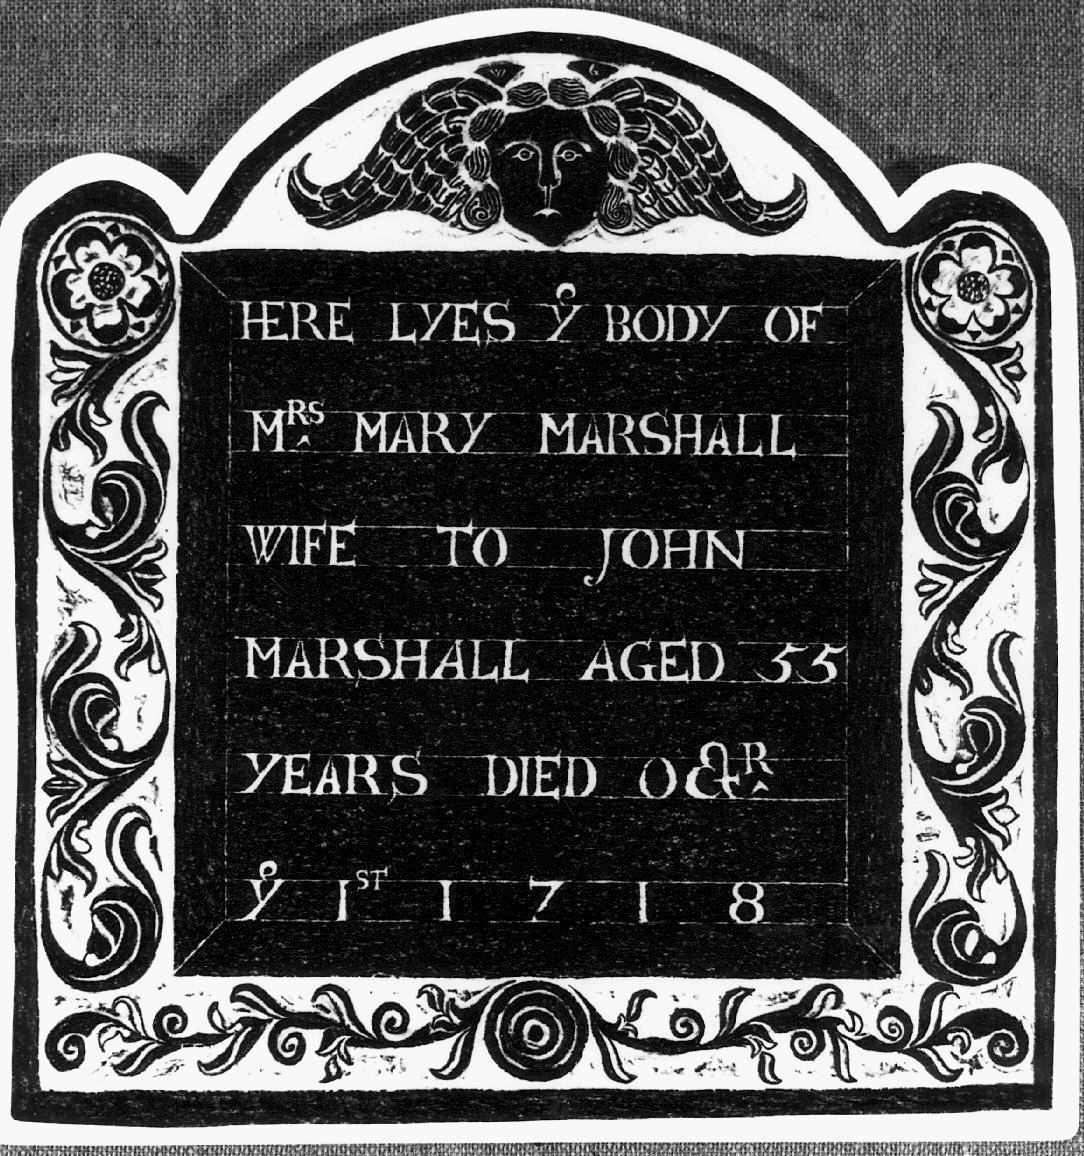 W G
HERE LYES yᵉ BODY OF
Mᴿˢ MARY MARSHALL
WIFE TO JOHN
MARSHALL AGED 55
YEARS DIED Octᴿ
yᵉ 1ˢᵀ 1718